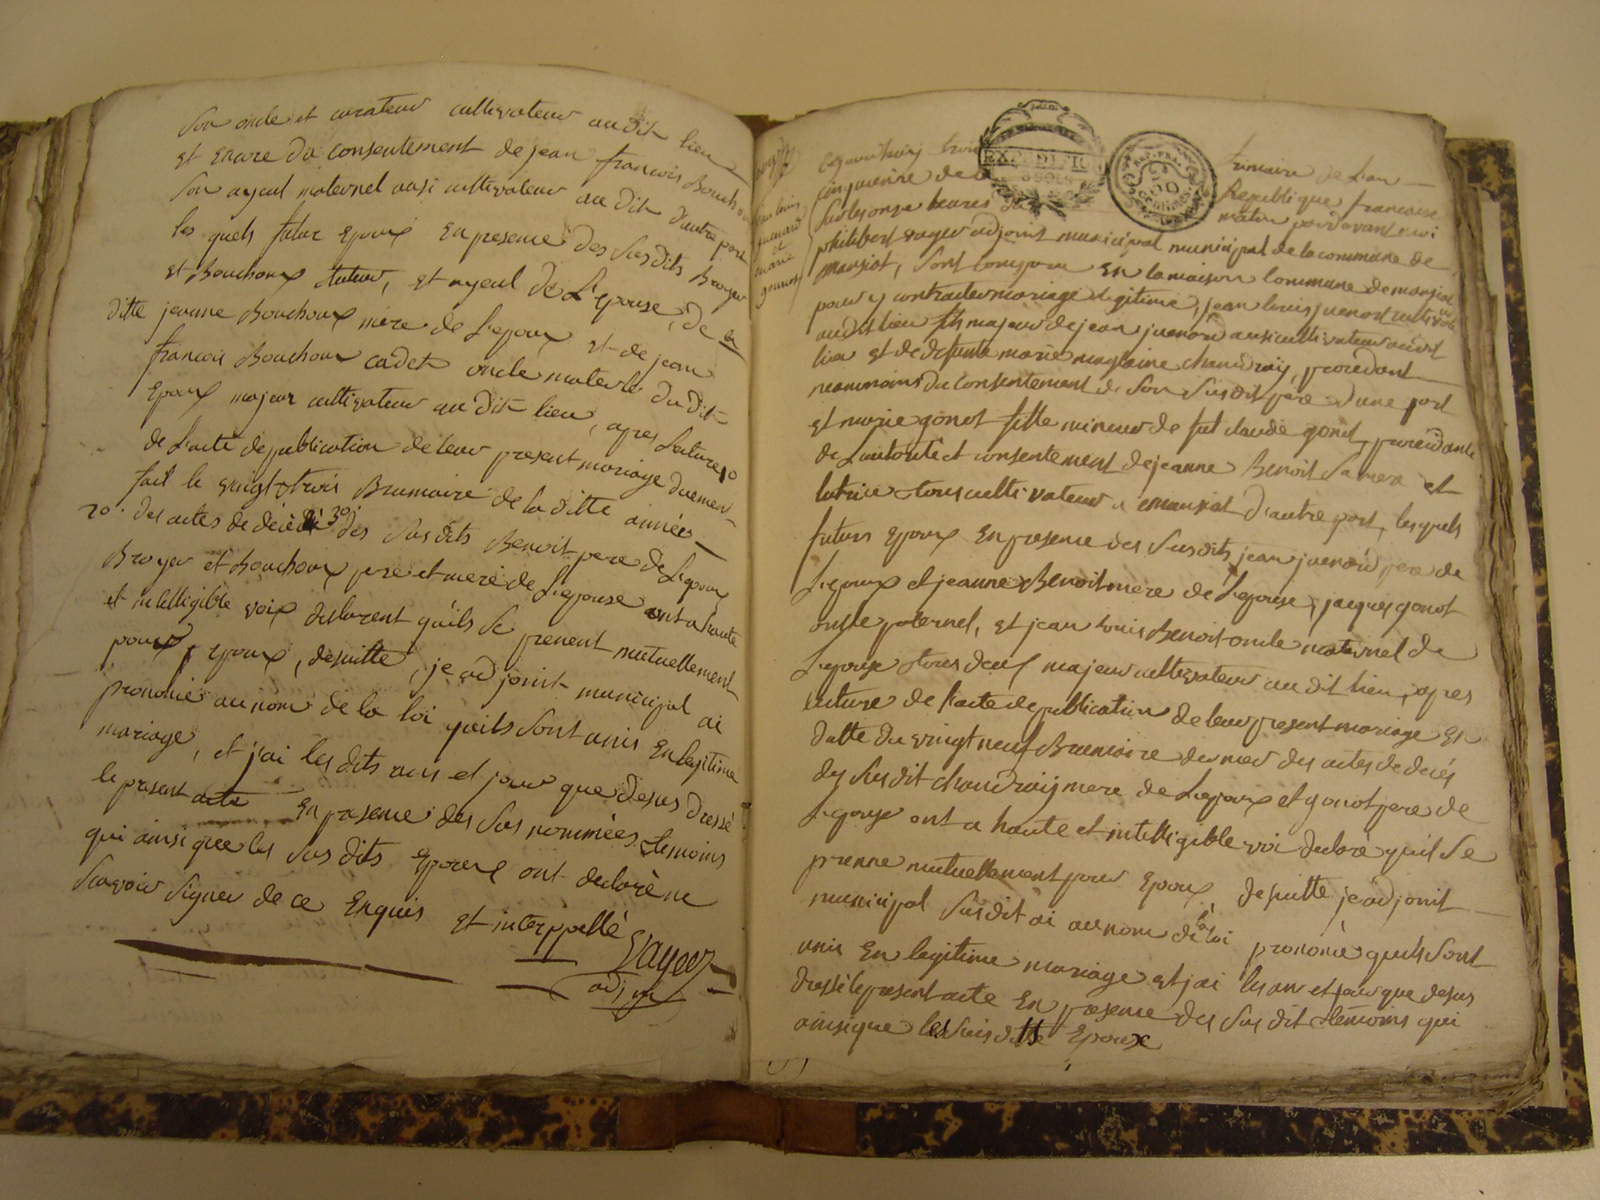 son oncle et curateur cultivateur au dit lieu
et encore du consentement de jean francois Bouchoux
son ayeul maternel aussi cultivateur au dit d'autre part
les quels futur Epoux En presence des susdits Broyer
et Bouchoux tuteur, et ayeul de L'epouse, de la
ditte jeanne Bouchoux mere de L'epoux et de jean
francois Bouchoux cadet oncle maternel du dit
Epoux majeur cultivateur au dit lieu, apres Lecture 1º
de L'acte de publication de leur present mariage duement
fait le vingt trois Brumaire de la ditte année
2º. des actes de décé 3º des susdits Benoit pere de L'epoux
Broyer et Bouchoux pere et mere de L'epouse ont a haute
et intelligible voix declarent qu'ils se prenent mutuellement
pour Epoux, desuitte, je adjoint municipal ai
prononcé au nom de la loi qu'ils sont unis En legitime
mariage, et j'ai les dits an et jour que desus dressé
le present acte En presence des sus nommées temoins
qui ainsi que les susdits Epoux ont declaré ne
scavoir signer de ce Enquis et interppellé
Vayer
adj
trois
frimaire de L'an
cinquieme de la
Republique francaise
sur les onze heures du
matin pardevant moi
philibert vayer adjoint municipal municipal de la commune de
marsiat, sont comparu En la maison Commune de marsiat
pour y contracter mariage legitime, jean louis juenard cultivateur
audit lieu fils majeur de jean juenard aussi cultivateur audit
lieu et de defunte marie magdaine chaudray, procedant
neammoins du consentement de son susdit pere d'une part
et marie gonot fille mineur de fut claude gonot, procedante
de L'autorité et consentement de jeanne Benoit sa mere et
tutrice tous cultivateur a marsiat d'autre part, lesquels
futurs Epoux En presence des susdits jean juenard pere de
L'epoux et jeanne Benoit mere de L'epouse, jacques gonot
oncle paternel, et jean louis Benoit oncle maternel de
L'epouse tous deux majeur cultivateur au dit lieu, apres
lecture de L'acte de publication de leur present mariage En
datte du vingt neuf Brumaire dernier des actes de decés
des susdit chaudray mere de L'epoux et gonot pere de
L'epouse ont a haute et intelligible voi declaré quil se
prenne mutuellement pour Epoux, de suitte je adjoint
municipal susdit ai au nom de la loi prononcé quils sont
unis En legitime mariage et jai les an et jour que desus
dressé le present acte En presence des sus dit temoins qui
ainsi que les susditts Epoux
jean louis
juenard
et
marie
gonnot